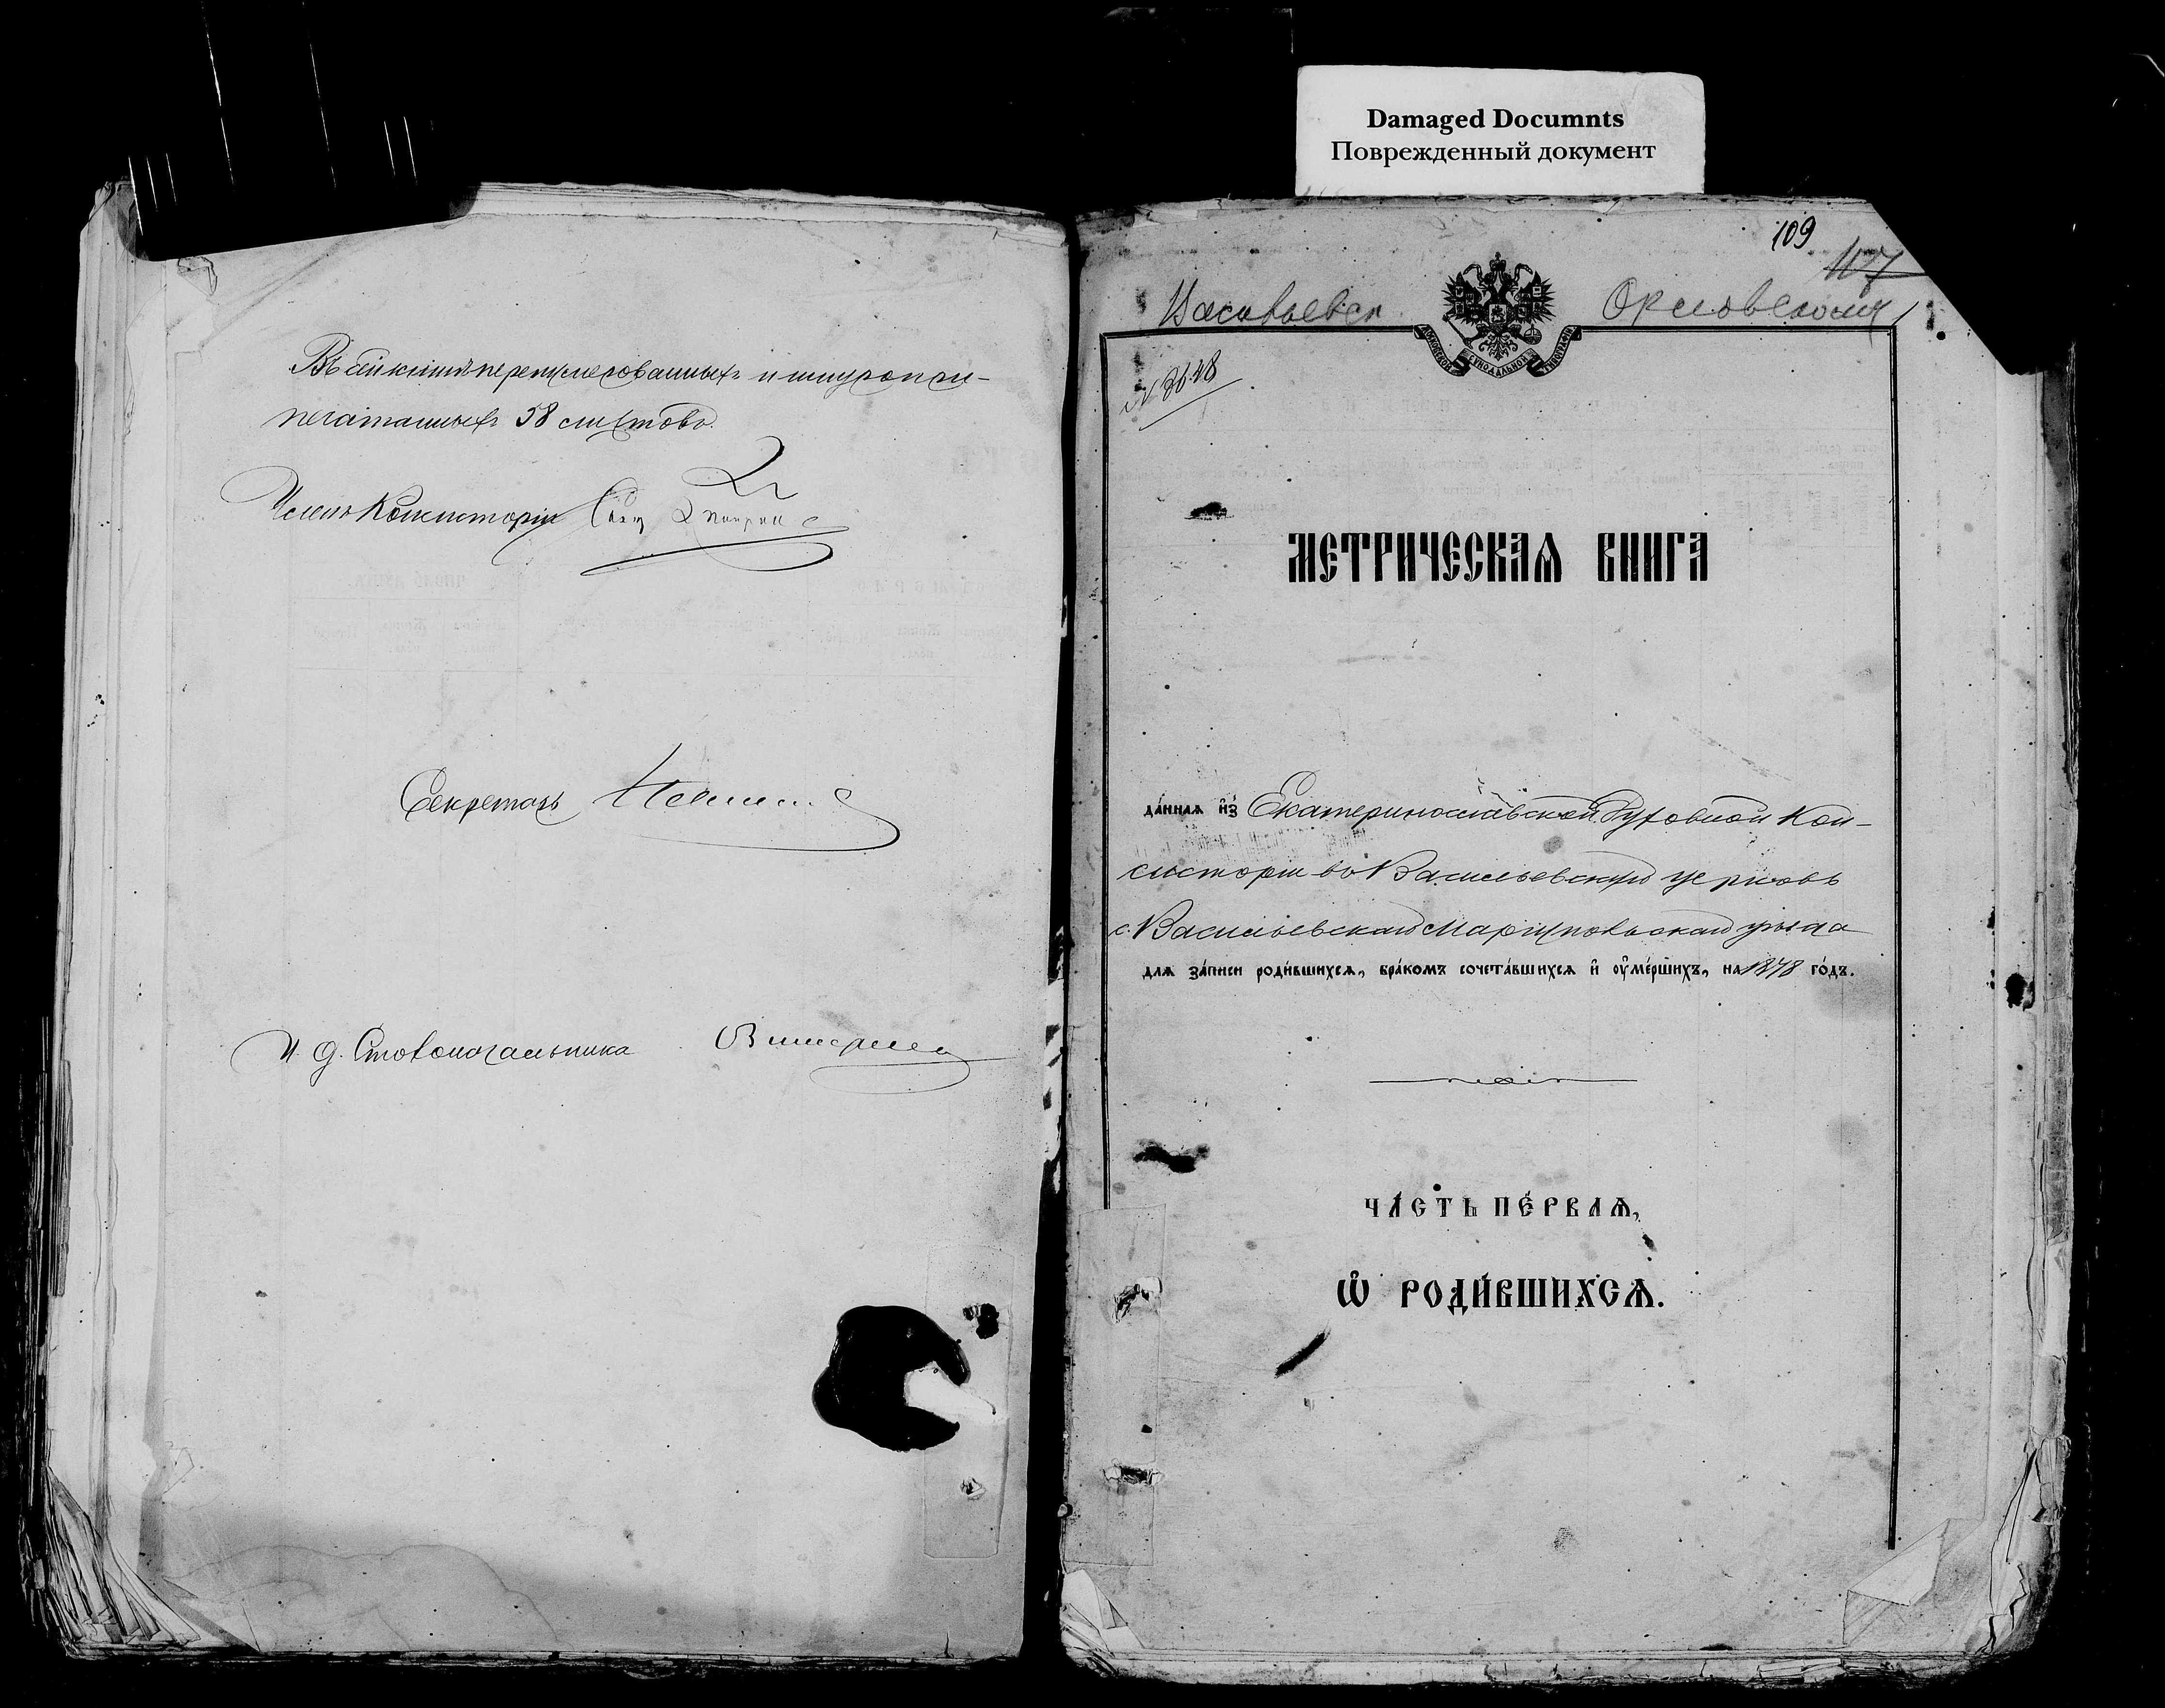 Damaged Documnts
Поврежденный документ
Въ сей книгѣ перенумерованныхъ и шнуропри-
печатанныхъ 58 листовъ.
Членъ Консисторіи Свящ
Секретарь
И. д. Столоначальника
109
117
Васильевск
Орловскому
МОСКОВСКОЙ СѴНОДАЛЬНОЙ ТИПОГРАФІИ
№ 3648
МЕТРИЧЕСКАѦ КНИГА
да́ннаѧ и҆з̾ Екатеринославской Духовной Кон-
систоріи въ Васильевскую церковь
с. Васильевскаго Маріупольскаго уѣзда
длѧ за́писи роди́вшихсѧ, бра́комъ сочета́вшихсѧ и҆ ᲂу҆ме́ршихъ, на 1878 го́дъ.
ЧА́СТЬ ПЕ́РВАѦ,
Ѽ РОДИ́ВШИХСѦ.